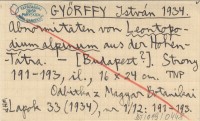 GYÖRFFY István 1934.
Abnormitäten von Leontopo-
dium alpinum aus der Hohen
Tatra. — [Budapest]. Strony
191-193, il., 16 x 24 cm. TNP
Odbitka z Magyar Botanikai
Lapok 33 (1934), nr 1/12: 191-193.